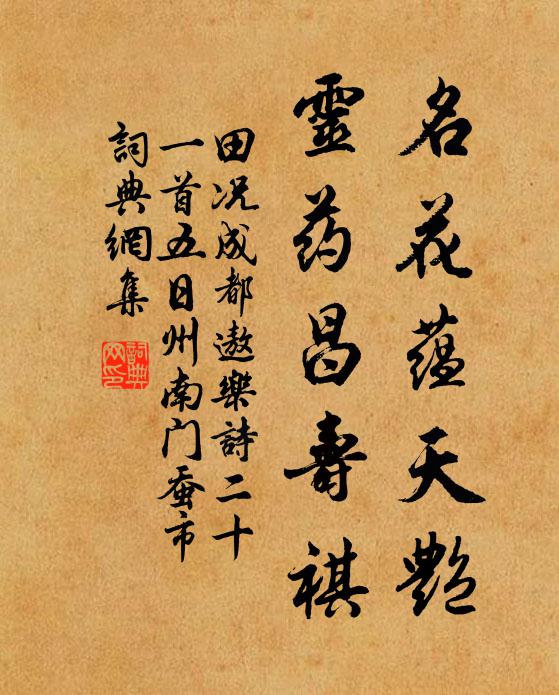 名花蕴天艷
靈药昌壽祺
田况成都遨樂詩二十
一首五日州南门蚕市
詞典網集
詞典
网印